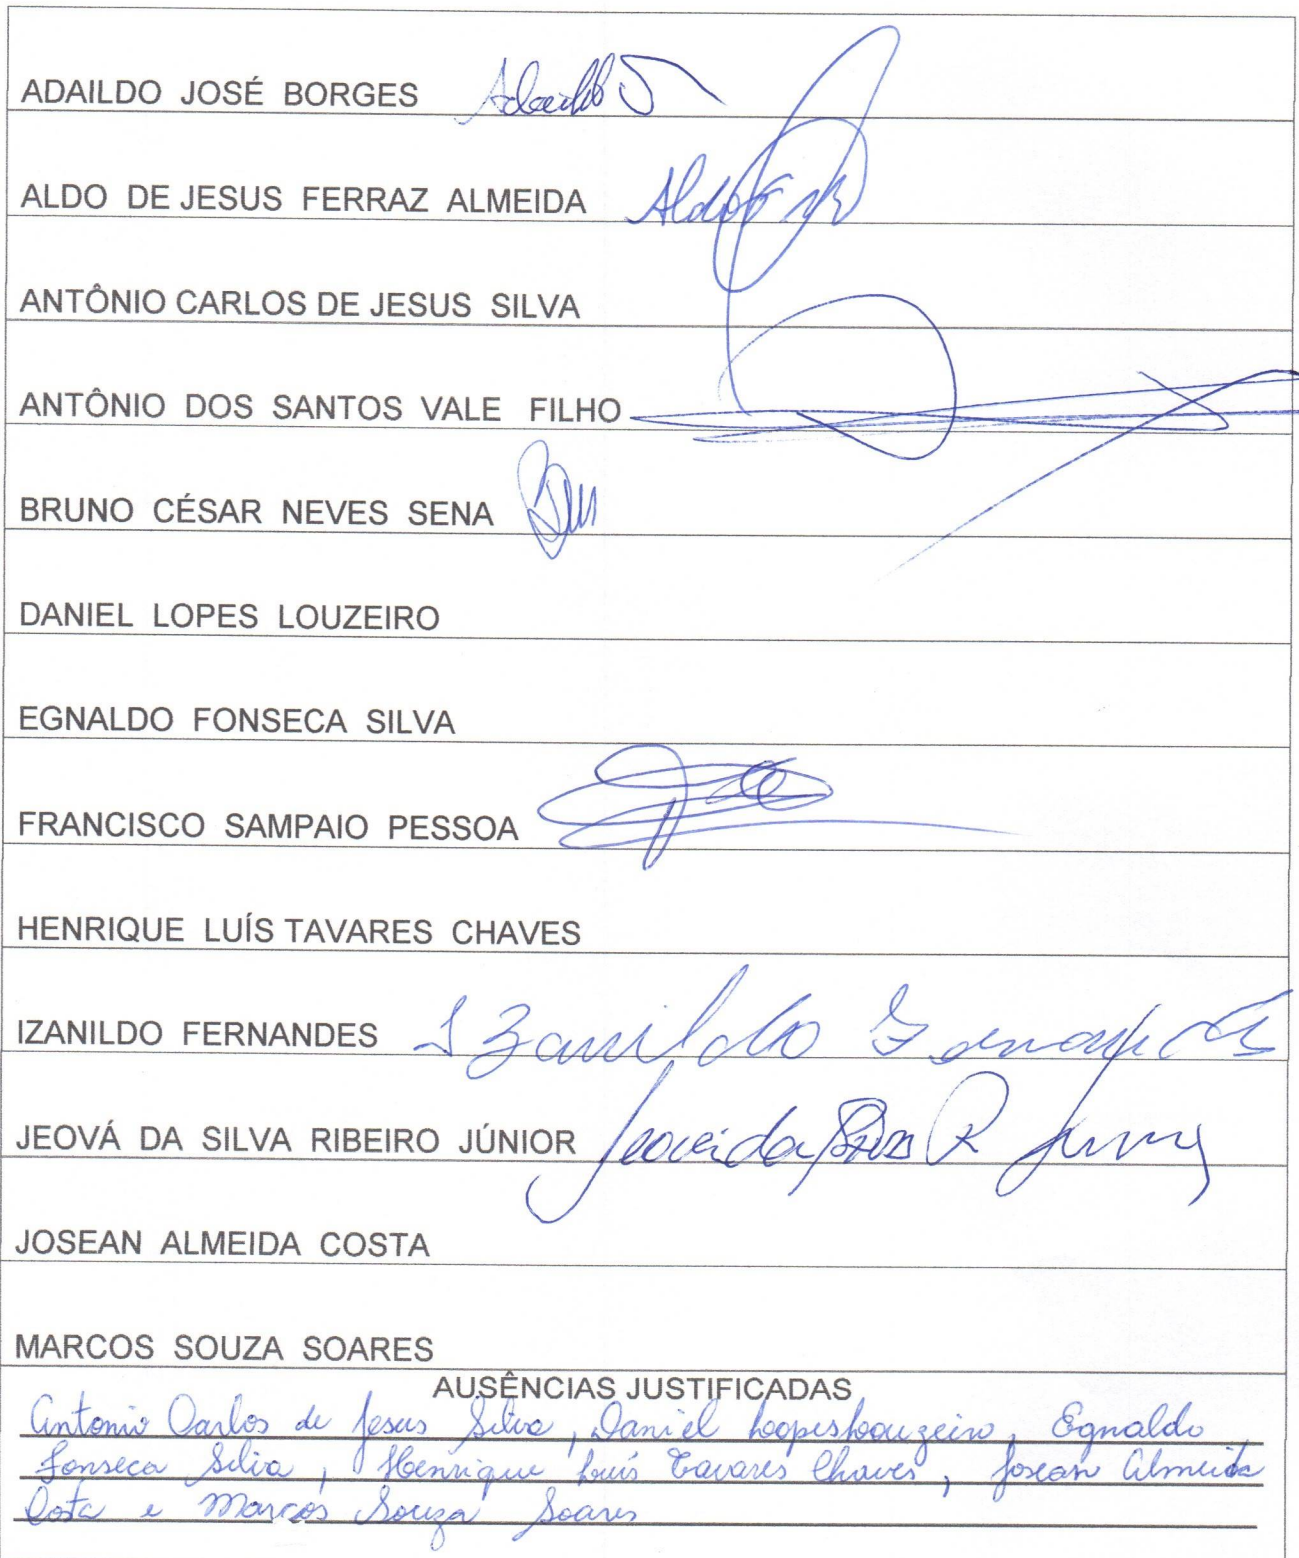 ADAILDO JOSÉ BORGES Adaildo J
ALDO DE JESUS FERRAZ ALMEIDA Aldo
ANTÔNIO CARLOS DE JESUS SILVA
ANTÔNIO DOS SANTOS VALE FILHO
BRUNO CÉSAR NEVES SENA
DANIEL LOPES LOUZEIRO
EGNALDO FONSECA SILVA
FRANCISCO SAMPAIO PESSOA
HENRIQUE LUÍS TAVARES CHAVES
IZANILDO FERNANDES Izanildo Fernandes
JEOVÁ DA SILVA RIBEIRO JÚNIOR Jeová da Silva R Junior
JOSEAN ALMEIDA COSTA
MARCOS SOUZA SOARES
AUSÊNCIAS JUSTIFICADAS
Antonio Carlos de Jesus Silva, Daniel Lopes Louzeiro, Egnaldo
Fonseca Silva, Henrique Luís Tavares Chaves, Josean Almeida
Costa e Marcos Souza Soares